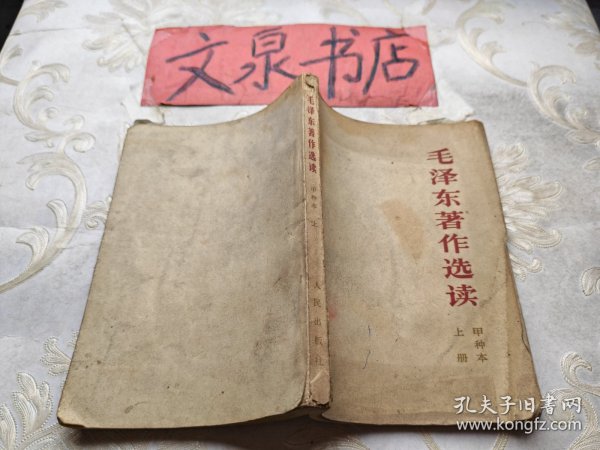 文泉书店
毛泽东著作选读
甲种本
上
人民出版社
毛泽东著作选读
甲种本
上册
孔夫子旧书网
www.kongfz.com